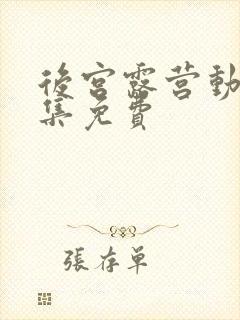 後宮露营動
集免費
張存單